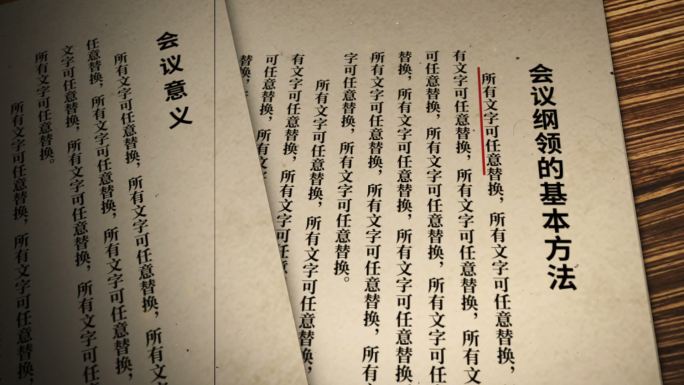 会议纲领的基本方法
所有文字可任意替换，所有文字可任意替换，
有文字可任意替换，所有文字可任意替换，所有文
可任意替换，所有文字可任意替换，所有文字可任
替换，所有文字可任意替换，所有文字可任意替换，
所有文字可任意替换，所有文字可任意替换，所有
字可任意替换，所有文字可任意替换。
所有文字可任意替换，所有文字可任意替换，
有文字可任意替换，所有文字可任意
可任意替换，所有文
替换，
会议意义
所有文字可任意替换，所有文字可任意替换，所有文
任意替换，所有文字可任意替换，所有文字可任意替
文字可任意替换，所有文字可任意替换，所有文字可
所有文字可任意替换。
所有文字可任意替换，所有文字可任意替换，